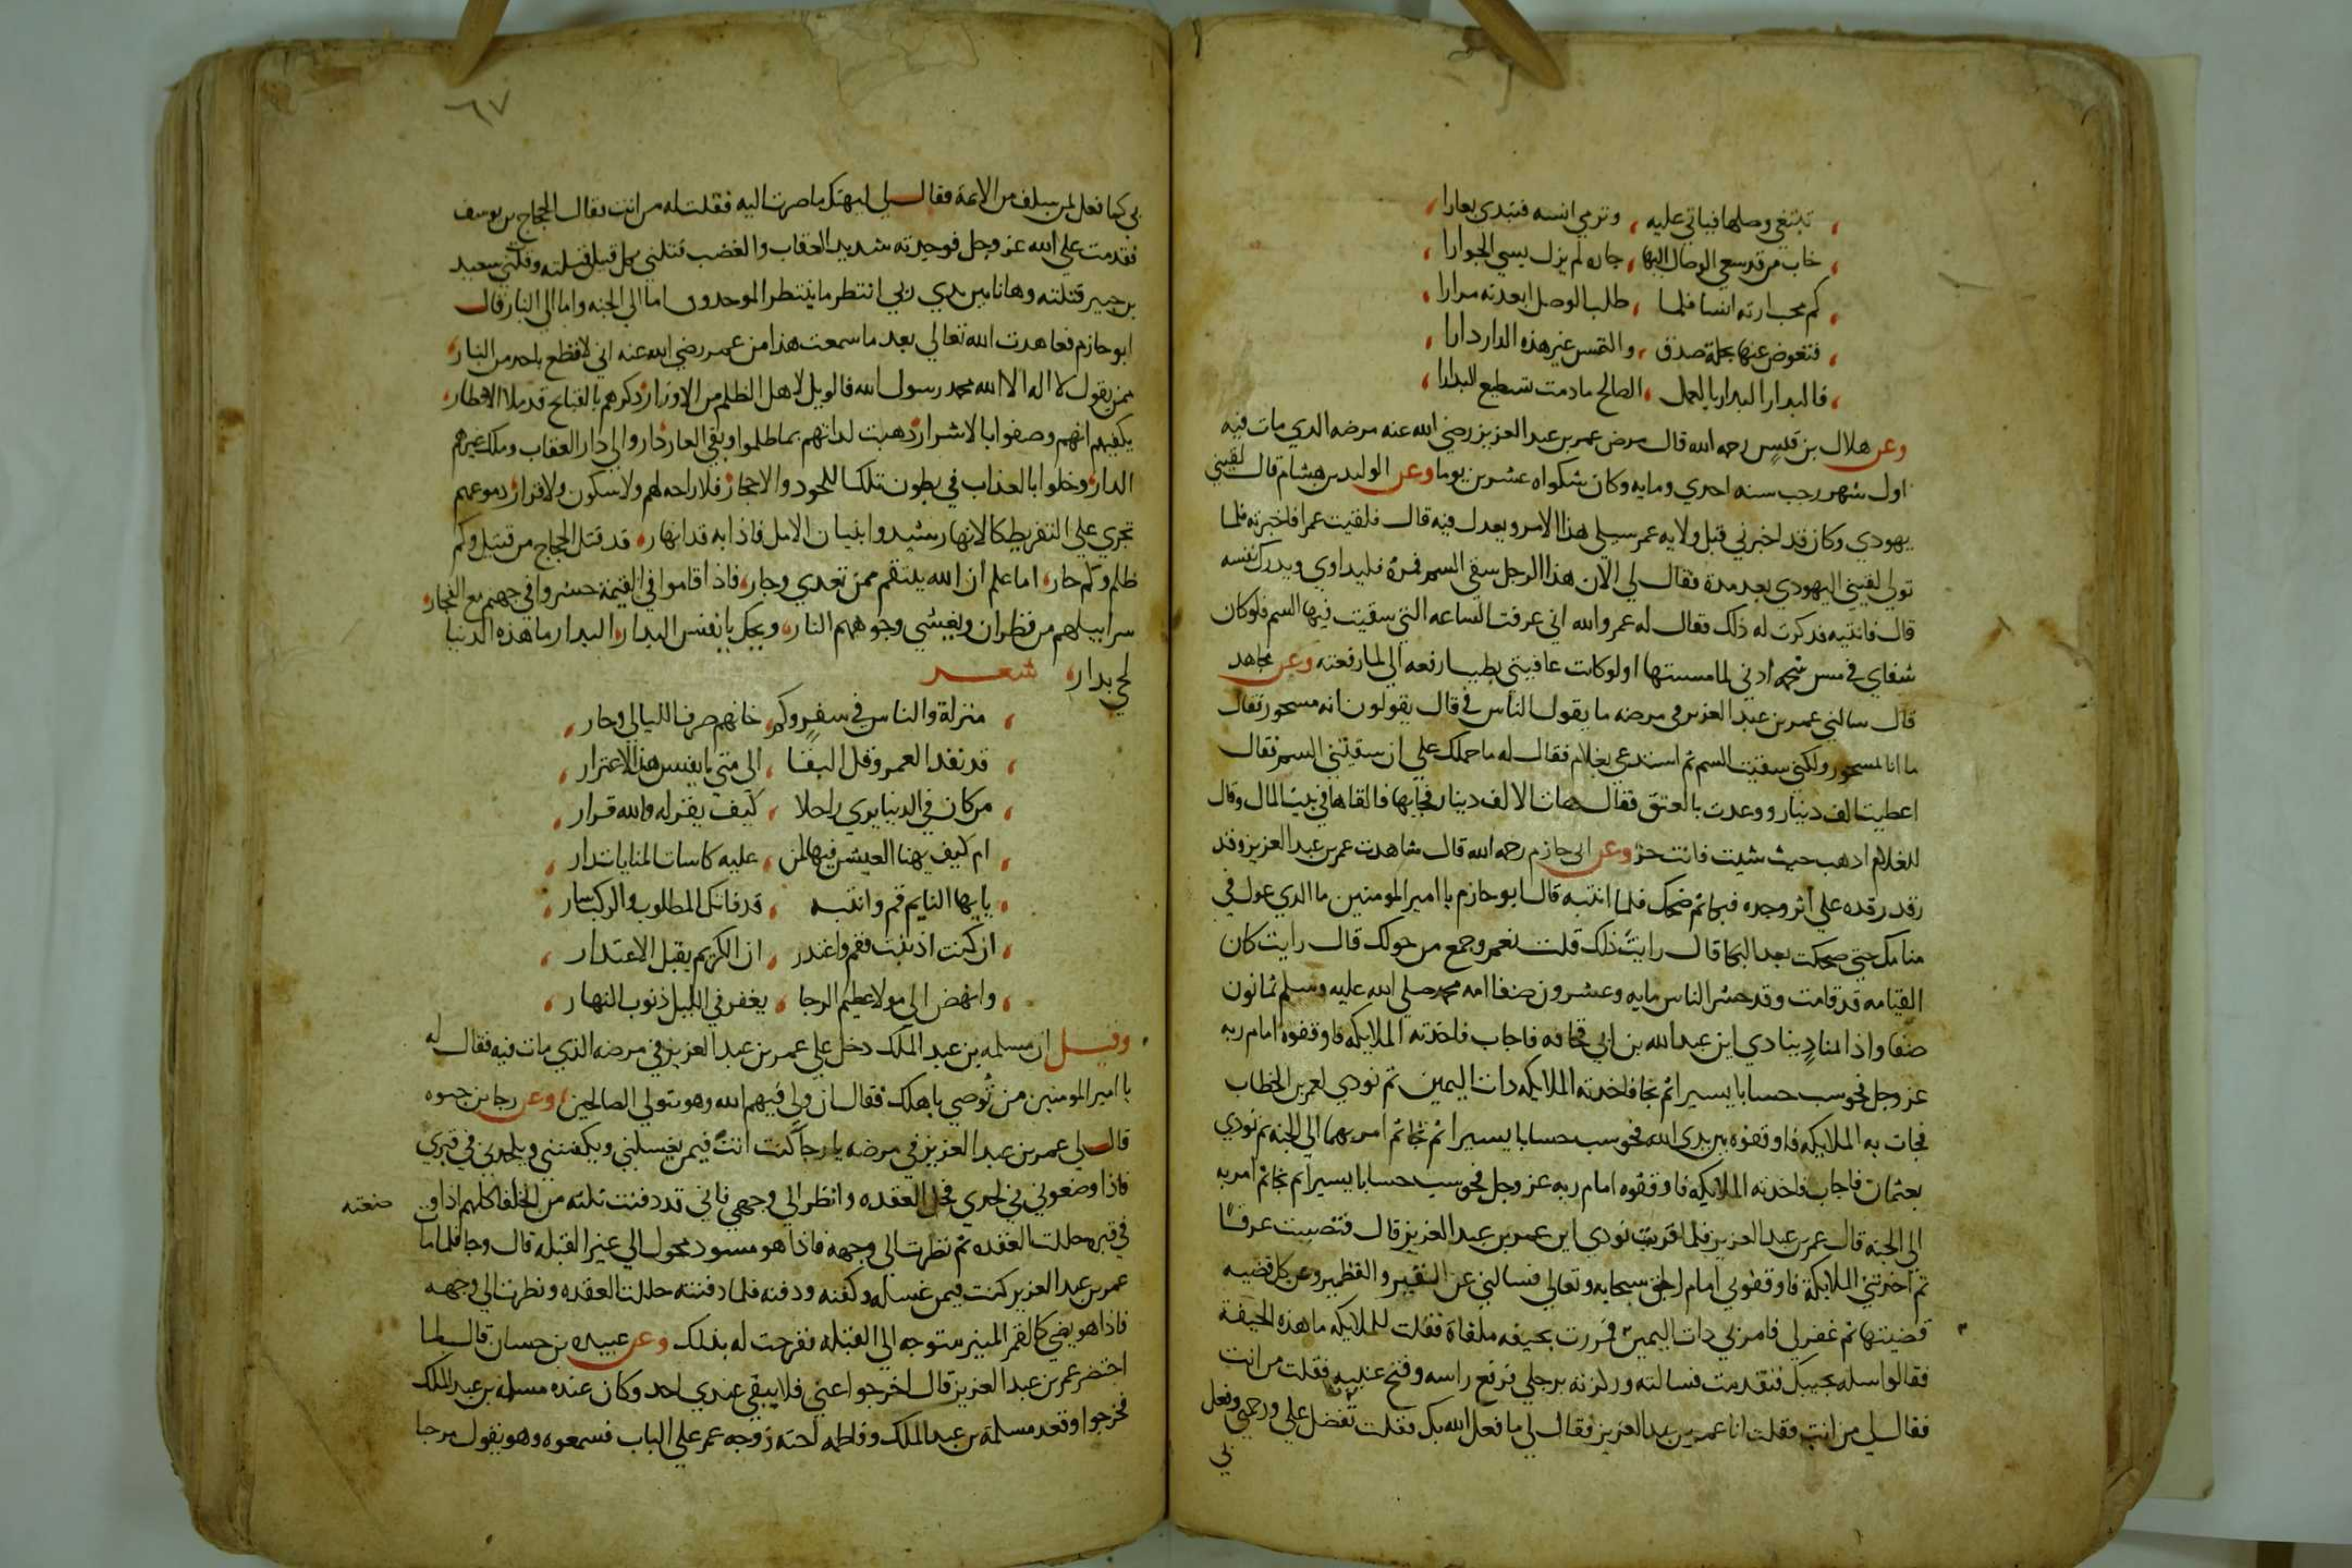 تبتغي وصلها فياتي عليه وترمي انسه فتبدي بعارا
خاب من قد سعي الوصال اليها جاره لم يزل يسي الجوارا
كم محب ارته انسا فلما طلب الوصل ابعدته مرارا
فتعوض عنها بحلة صدق والتمس غير هذه الدار دارا
فالبدار البدار بالعمل الصالح مادمت تستطيع البدارا
وعن هلال بن قيس رحمه الله قال مرض عمر بن عبد العزيز رضي الله عنه مرضه الدي مات فيه
اول شهر رجب سنه احدي ومايه وكان شكواه عشرين يوما وعن الوليد بن هشام قال لقيني
يهودي وكان قد اخبرني قبل ولايه عمر سيلي هذا الامر ويعدل فيه قال فلقيت عمر فاخبرته فلما
تولي لقيني اليهودي بعد مدة فقال لي الآن هذا الرجل سقي السم فمره فليداوي ويدرك نفسه
قال فاتيته فدكرت له ذلك فقال له عمر والله اني عرفت الساعه التي سقيت فيها السم فلو كان
شفاي في مس شحمه ادني لما مسستها اولوكانت عافيتي بطيب ارفعه الي لما رفعته وعن مجاهد
قال سالني عمر بن عبد العزيز في مرضه ما يقول الناس في قال يقولون انه مسحور فقال
ما انا مسحور ولكني سقيت السم ثم استدعي بغلام فقال له ما حملك علي ان سقيتني السم فقال
اعطيت الف دينار ووعدت بالعتق فقال هات الالف دينار فجابها فالقاها في بيت المال وقال
للغلام ادهب حيث شيت فانت حر وعن ابي حازم رحمه الله قال شاهدت عمر بن عبد العزيز وقد
رقد رقده علي اثر وجده فبكا ثم ضحك فلما انتبه قال ابو حازم يا امير المومنين ما الدي عول في
منامك حتي ضحكت بعد البكا قال رايت ذلك قلت نعم وجمع من حولك قال رايت كان
القيامه قد قامت وقد حشر الناس مايه وعشرون صفا امه محمد صلي الله عليه وسلم ثمانون
صفا واذا المناد ينادي اين عبد الله بن ابي قحافه فاجاب فاخدته الملايكه فاوقفوه امام ربه
عز وجل فحوسب حسابا يسيرا ثم نجا فاخدته الملايكه دات اليمين ثم نودي لعمر بن الخطاب
فجات به الملايكه فاوقفوه بين يدي الله فحوسب حسابا يسيرا ثم نجا ثم امر بهما الي الجنه ثم نودي
بعثمان فاجاب فاخدته الملايكه فاوقفوه امام ربه عز وجل فحوسب حسابا يسيرا ثم نجا ثم امر به
الي الجنه قال عمر بن عبد العزيز فلما قربت نودي اين عمر بن عبد العزيز قال فتصببت عرقا
ثم اخدتني الملايكة فاوقفوني امام الحق سبحانه وتعالي فسالني عن النقير والقطمير وعن كل قضيه
قضيتها ثم غفر لي فامر بي دات اليمين فمررت بجيفه ملقاة فقلت للملايكه ما هذه الجيفة
فقالوا سله يجيبك فتقدمت فسالته وركزته برجلي فرفع راسه وفتح عنيه فقلت من انت
فقال لي من انت فقلت انا عمر بن عبد العزيز فقال لي ما فعل الله بك فقلت تفضل علي ورحمني وفعل
بي
٦٧
بي كما فعل لمن سلف من الايمة فقال لي ليهنك ما صرت اليه فقلت له من انت فقال الحجاج بن يوسف
فقدمت علي الله عز وجل فوجدته شديد العقاب والغضب فقتلني بكل قتيل قتلته وقتلني بسعيد
بن جبير قتلته وهانا بين يدي ربي انتظر ما ينتظر الموحدون اما الي الجنه واما الي النار قال
ابو حازم فعاهدت الله تعالي بعد ما سمعت هذا من عمر رضي الله عنه اني لا اقطع باحد من النار
ممن يقول لا اله الا الله محمد رسول الله فالويل لاهل الظلم من الاوزار ذكرهم بالقبايح قد ملا الاقطار
يكفيهم انهم وصفوا بالاشرار ذهبت لداتهم بما ظلموا وبقي العار داروا الي دار العقاب وملك غيرهم
الدار وخلوا بالعذاب في بطون تلك اللحود والاحجار فلا راحه لهم ولا سكون ولا قرار دموعهم
تجري علي التفريط كالانهار شيدوا بنيان الامل فاذا به قد انهار قد قتل الحجاج من قتيل وكم
ظلم وكم جار اما علم ان الله ينتقم ممن تعدي وجار فاذا قاموا في القيمة حشروا في جهنم مع الفجار
سرابيلهم من قطران وتغشي وجوههم النار ويحك يا نفس البدار البدار ما هذه الدنيا
لحي بدار شعر
منزلة والناس في سفر وكم خانهم صرف الليالي وجار
قد نفد العمر وقل البقا الي متي يا نفس هذا الاغترار
من كان في الدنيا يري راحلا كيف يقر له والله قرار
ام كيف يهنا العيش فيها لمن عليه كاسات المنايا تدار
يا ايها النايم قم وانتبه قد فاتك المطلوب والركب سار
ان كنت اذنبت فقم واعتدر ان الكريم يقبل الاعتدار
وانهض الي مولا عظيم الرجا يغفر في الليل ذنوب النهار
وقيل ان مسلمه بن عبد الملك دخل علي عمر بن عبد العزيز في مرضه الذي مات فيه فقال له
يا امير المومنين من توصي باهلك فقال ان ولي فيهم الله وهو يتولي الصالحين وعن رجا بن حيوه
قال لي عمر بن عبد العزيز في مرضه يا رجا كنت انت فيمن يغسلني ويكفنني ويلحدني في قبري
فاذا وضعوني في لحدي فحل العقده وانظر الي وجهي فاني قد دفنت ثلثه من الخلفا كلهم اذا و ضعته
في قبره حللت العقده ثم نظرت الي وجهه فاذا هو مسود محول الي غير القبله قال رجا فلما مات
عمر بن عبد العزيز كنت فيمن غسله وكفنه ودفنه فلما دفنته حللت العقده ونظرت الي وجهه
فاذا هو يضي كالقمر المنير متوجه الي القبله ففرحت له بذلك وعن عبيده بن حسان قال لما
احتضر عمر بن عبد العزيز قال اخرجوا عني فلا يبقي عندي احد وكان عنده مسلمه بن عبد الملك
فخرجوا وقعد مسلمة بن عبد الملك وفاطمه اخته زوجه عمر علي الباب فسمعوه وهو يقول مرحبا